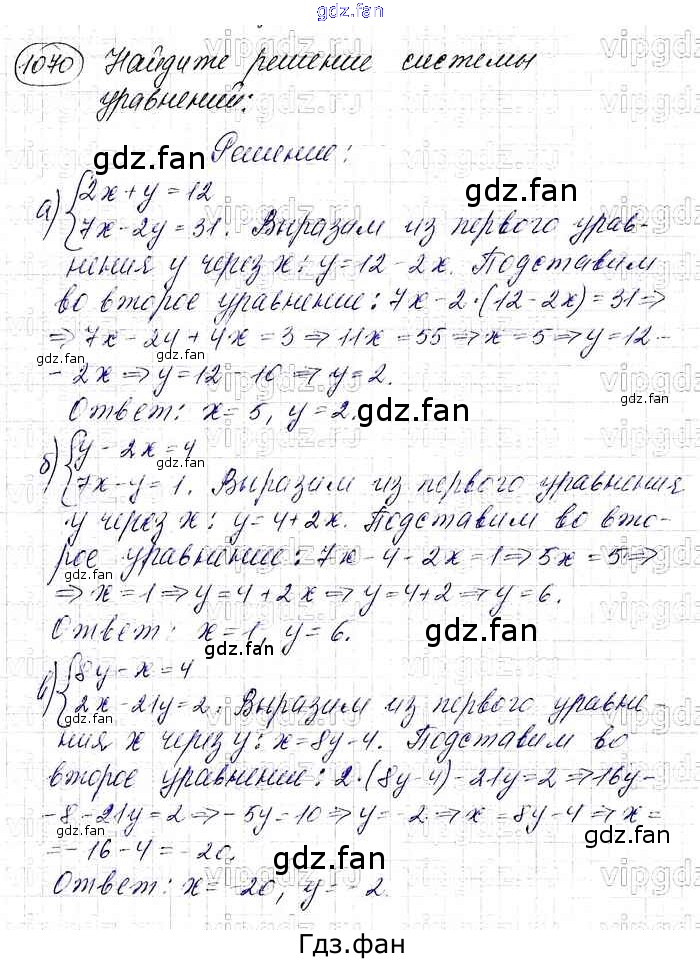 gdz.fan
1070 Найдите решение системы
уравнений:
Решение:
а) {2x + y = 12
7x - 2y = 31. Выразим из первого урав-
нения y через x: y = 12 - 2x. Подставим
во второе уравнение: 7x - 2·(12 - 2x) = 31 ⇒
⇒ 7x - 24 + 4x = 3 ⇒ 11x = 55 ⇒ x = 5 ⇒ y = 12 -
- 2x ⇒ y = 12 - 10 ⇒ y = 2.
Ответ: x = 5, y = 2.
б) {y - 2x = 4
7x - y = 1. Выразим из первого уравнения
y через x: y = 4 + 2x. Подставим во вто-
рое уравнение: 7x - 4 - 2x = 1 ⇒ 5x = 5 ⇒
⇒ x = 1 ⇒ y = 4 + 2x ⇒ y = 4 + 2 ⇒ y = 6.
Ответ: x = 1, y = 6.
в) {8y - x = 4
2x - 21y = 2. Выразим из первого уравне-
ния x через y: x = 8y - 4. Подставим во
второе уравнение: 2·(8y - 4) - 21y = 2 ⇒ 16y -
- 8 - 21y = 2 ⇒ - 5y = 10 ⇒ y = - 2 ⇒ x = 8y - 4 ⇒ x =
= - 16 - 4 = - 20.
Ответ: x = - 20, y = - 2.
Гдз.фан